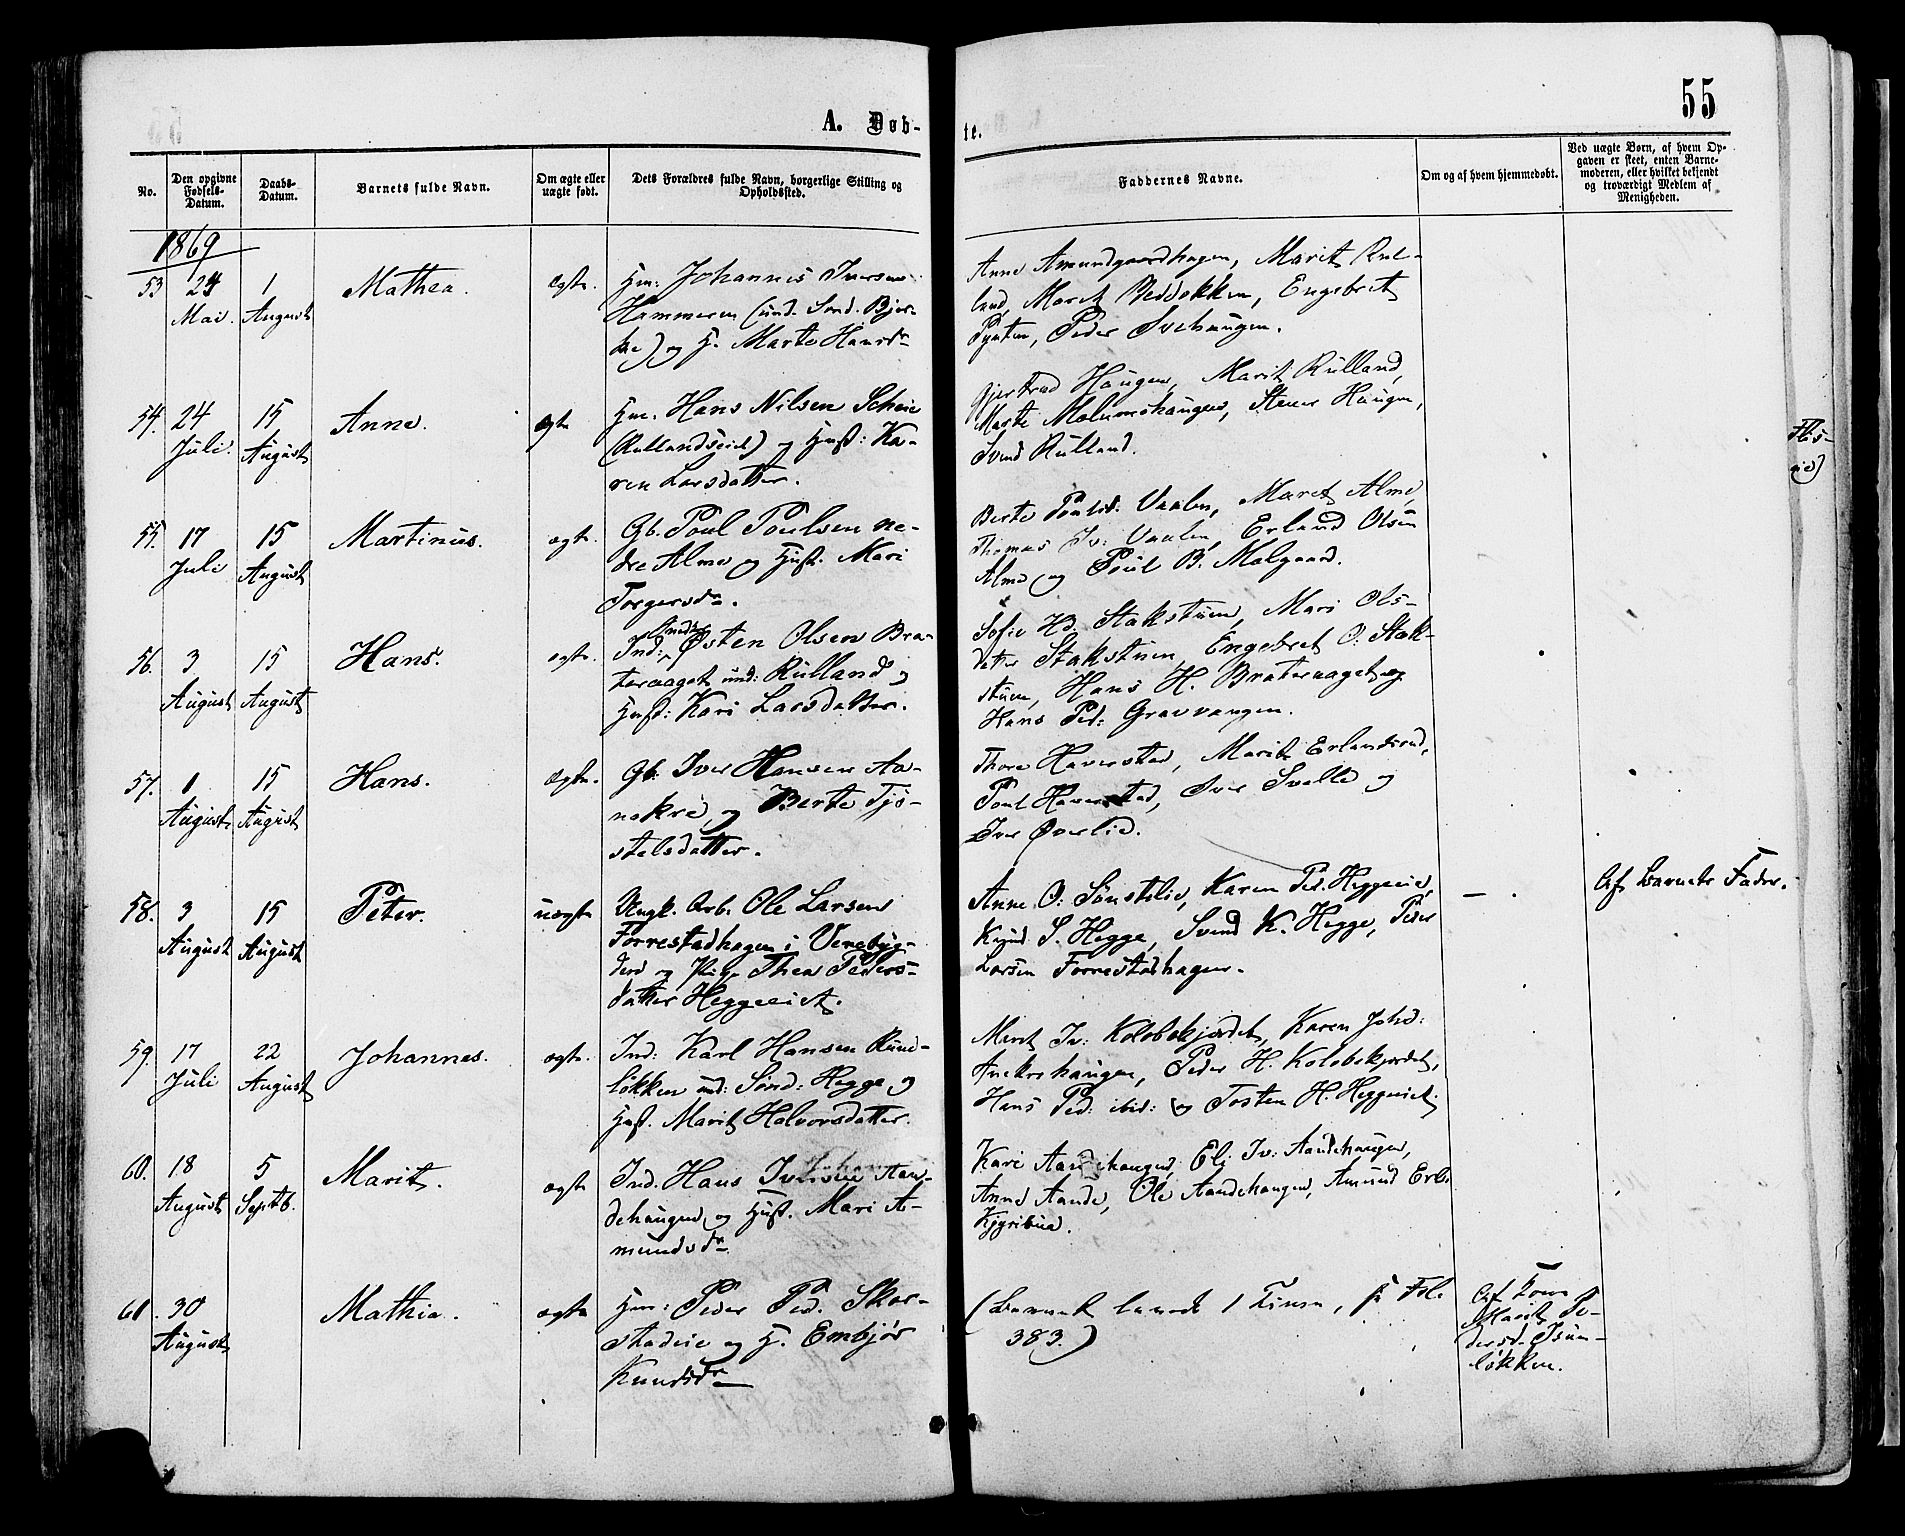 55
A. Døb-
te.
No.
Den opgivne Fødsels-Datum.
Daabs-Datum.
Barnets fulde Navn.
Om ægte eller uægte født.
Dets Forældres fulde Navn, borgerlige Stilling og Opholdssted.
Faddernes Navne.
Om og af hvem hjemmedøbt.
Ved uægte Børn, af hvem Op-
gaven er skeet, enten Barne-
moderen, eller hvilket bekjendt
og troværdigt Medlem af
Menigheden.
1869
53 24 Mai. 1 August Mathea. ægte.
Hm: Johannes Iversen
Hammeren (und. Sønd. Bjør-
ke) og H. Marte Hansdr
Anne Amundgaardhagen, Marit Rul-
land, Marit Veddokken, Engebret
Pynten, Peder Svehaugen.
54. 24 Juli. 15 August Anne. ægte
Hm. Hans Nilsen Scheie
(Rullandseiet) og Hust: Ka-
ren Larsdatter.
Gjertrud Haugen, Marit Rulland,
Marte Mælumshaugen, Stener Haugen,
Svend Rulland.
55. 17 Juli 15 August Martinus. ægte.
Gb. Poul Poulsen ne-
dre Alme og Hust. Mari
Torgersdr.
Berte Poulsd: Vaalen, Marit Alme,
Thomas Iv: Vaalen, Erland Olsen
Alme og Poul B. Mælgaard.
56. 3 August 15 August Hans. ægte.
Ind: Østen Olsen Bra-
tervaaget und: Rulland og
Hust: Kari Larsdatter.
Sofie Hd. Stakstuen, Mari Ols-
datter Stakstuen, Engebret O. Stak-
stuen, Hans H. Bratevaaget og
Hans Ped: Gravvangen.
57. 1 August 15 August Hans. ægte.
Gb: Iver Hansen Aa-
nekre og Berte Tjø-
stelsdatter.
Thore Haverstad, Marit Erlandsrud,
Poul Haverstad, Iver Svelle og
Iver Øverlid.
58. 3 August 15 August Peter. uægte
Ungk. Arb. Ole Larsen
Forrestadhagen i Venebyg-
den og Pige Thea Peders-
datter Heggeeiet.
Anne O: Sønstelie, Karen Ped. Heggeeie,
Knud S. Hegge, Svend K. Hegge, Peder
Larsen Forrestadhagen.
—
Af Barnets Fader.
59. 17 Juli 22 August Johannes. ægte.
Ind: Karl Hansen Rund-
løkken und: Sønd: Hegge og
Hust. Marit Halvorsdatter.
Marit Iv: Kolobekjordet, Karen Johd:
Ankerhaugen, Peder H. Kolobekjordet,
Hans Ped: ibid: og Tosten H. Heggeeiet.
60. 18 August 5 Septb. Marit. ægte
Ind. Hans Aan-
dehaugen og Hust. Mari A-
mundsdr.
Kari Aandehaugen, Eli Iv: Aandehaugen,
Anne Aande, Ole Aandehaugen, Amund Erl.
61 30 August Mathia. ægte
Hm: Peder Ped. Skar-
stadeie og H. Embjør
Knudsdr
(Barnet levede 1 , Fol.
383.)
Af
Marit Pe-
dersd. Isum-
løkken.